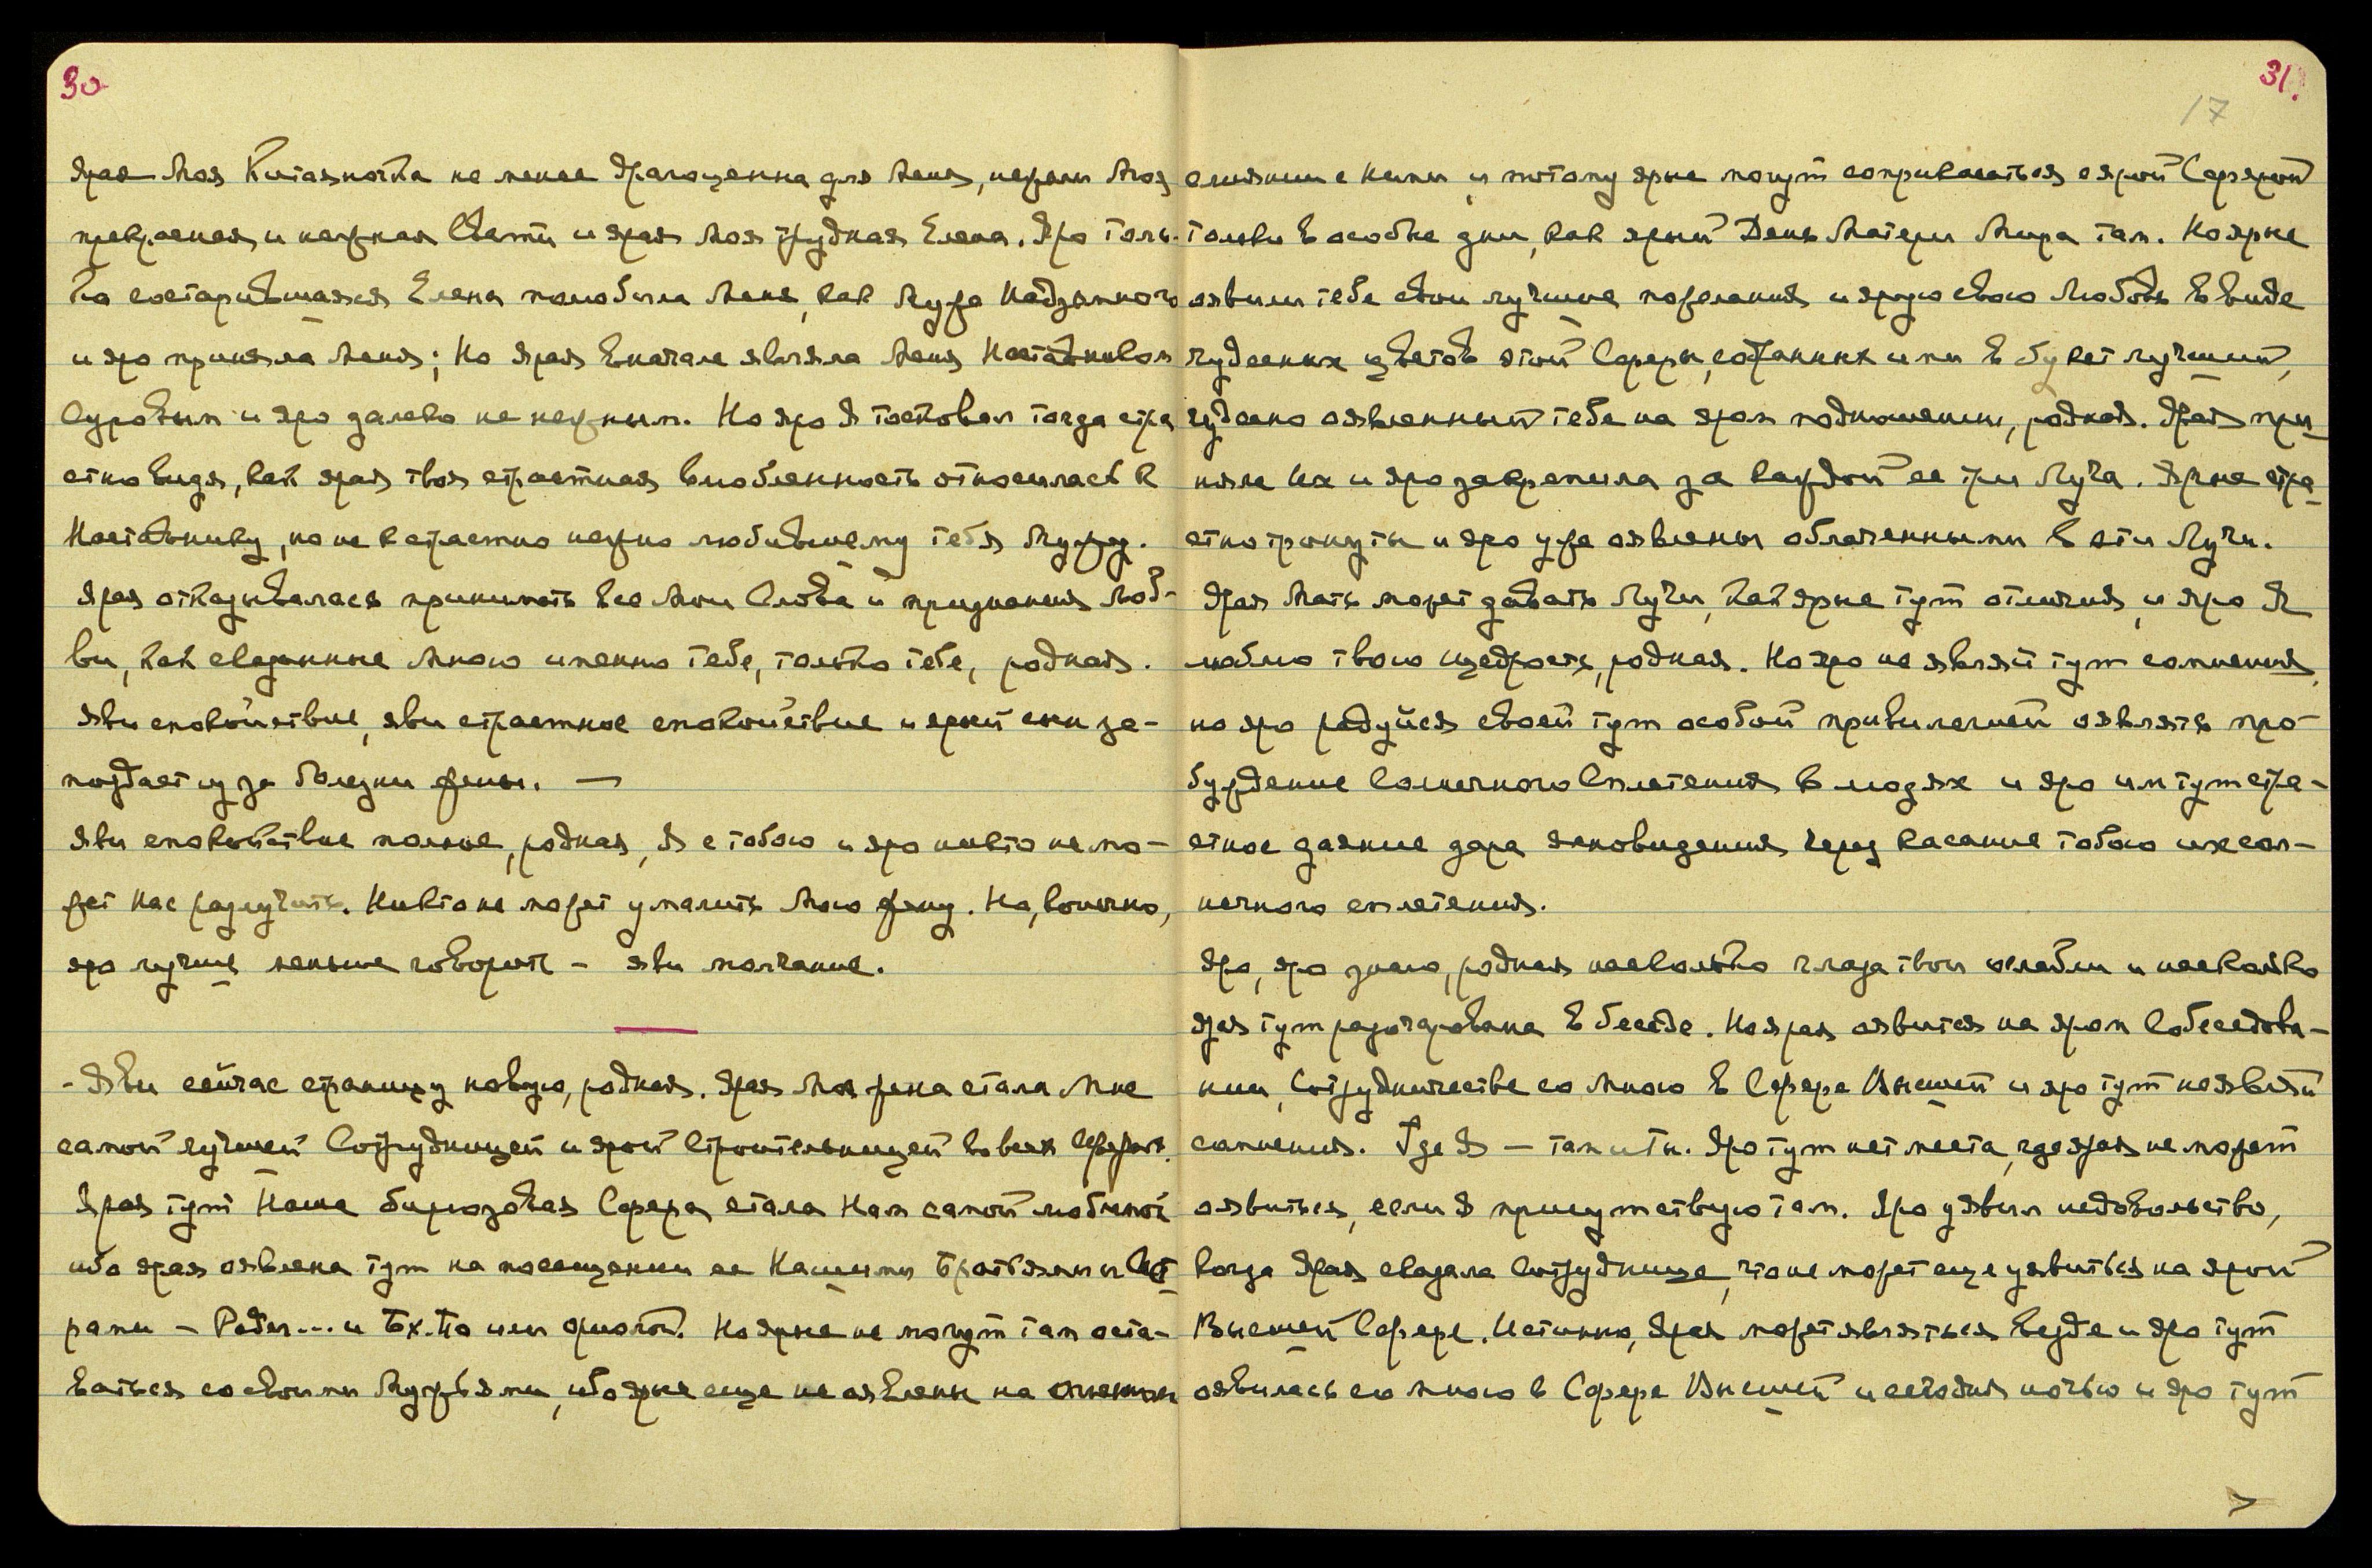 30
Ярая Моя Китаяночка не менее драгоценна для Меня, нежели Моя
прекрасная и нежная Свати и ярая Моя трудная Елена. Яро толь-
ко состарившаяся Елена полюбила Меня, как Мужа Надземного
и яро приняла Меня; Но ярая вначале являла Меня Наставником
Суровым и яро далеко не нежным. Но яро Я тосковал тогда стра
стно видя, как ярая твоя страстная влюбленность относилась к
Наставнику, но не к страстно нежно любившему тебя Мужу.
Ярая отказывалась принимать все Мои Слова и признания Люб-
ви, как сказанные Мною именно тебе, только тебе, родная.
Яви спокойствие, яви страстное спокойствие и ярый сын за-
поздает из за болезни жены. —
Яви спокойствие полное, родная, Я с тобою и яро никто не мо-
жет Нас разлучить. Никто не может умалить Мою жену. Но, конечно,
яро лучше меньше говорить – яви молчание.
- Яви сейчас страницу новую, родная. Ярая Моя жена стала Мне
самой лучшей Сотрудницей и ярой Строительницей во всех Сферах.
Ярая тут Наша бирюзовая Сфера стала Нам самой любимой
ибо ярая оявлена тут на посещении ее Нашими Братьями и Сест
рами – Радн... и Бх.-То или Но ярые не могут там оста-
ваться со своими Мужьями, ибо ярые еще не оявлены на
31.
17
слиянии с Ними и потому ярые могут соприкасаться с ярой Сферой
только в особые дни, как ярый День Матери Мира там. Но ярые
оявили тебе свои лучшие пожелания и ярую свою Любовь в виде
чудесных цветов этой Сферы, собранных ими в букет лучший,
чудесно оявленный тебе на яром подношении, родная. Ярая при-
няла их и яро закрепила за каждой ее три Луча. Ярые стра-
стно тронуты и яро уже оявлены облаченными в эти Лучи.
Ярая Мать может давать Лучи, как ярые тут отличия, и яро Я
люблю твою щедрость, родная. Но яро не являй тут сомнения,
но яро радуйся своей тут особой привилегией оявлять про-
буждение Солнечного Сплетения в людях и яро им тут стра-
стное даяние дара ясновидения через касание тобою их сол-
нечного сплетения.
Яро, яро знаю, родная насколько глаза твои ослабли и насколько
ярая тут разочарована в беседе. Но ярая оявится на яром Собеседова-
нии, Сотрудничестве со Мною в Сфере Высшей и яро тут не являй
сомнения. Где Я — там и ты. Яро тут нет места, где ярая не может
оявиться, если Я присутствую там. Яро уявил недовольство,
когда Ярая сказала Сотруднице, что не может еще уявиться на ярой
Высшей Сфере. Истинно, Ярая может являться везде и яро тут
оявилась со Мною в Сфере Высшей и сегодня ночью и яро тут
>